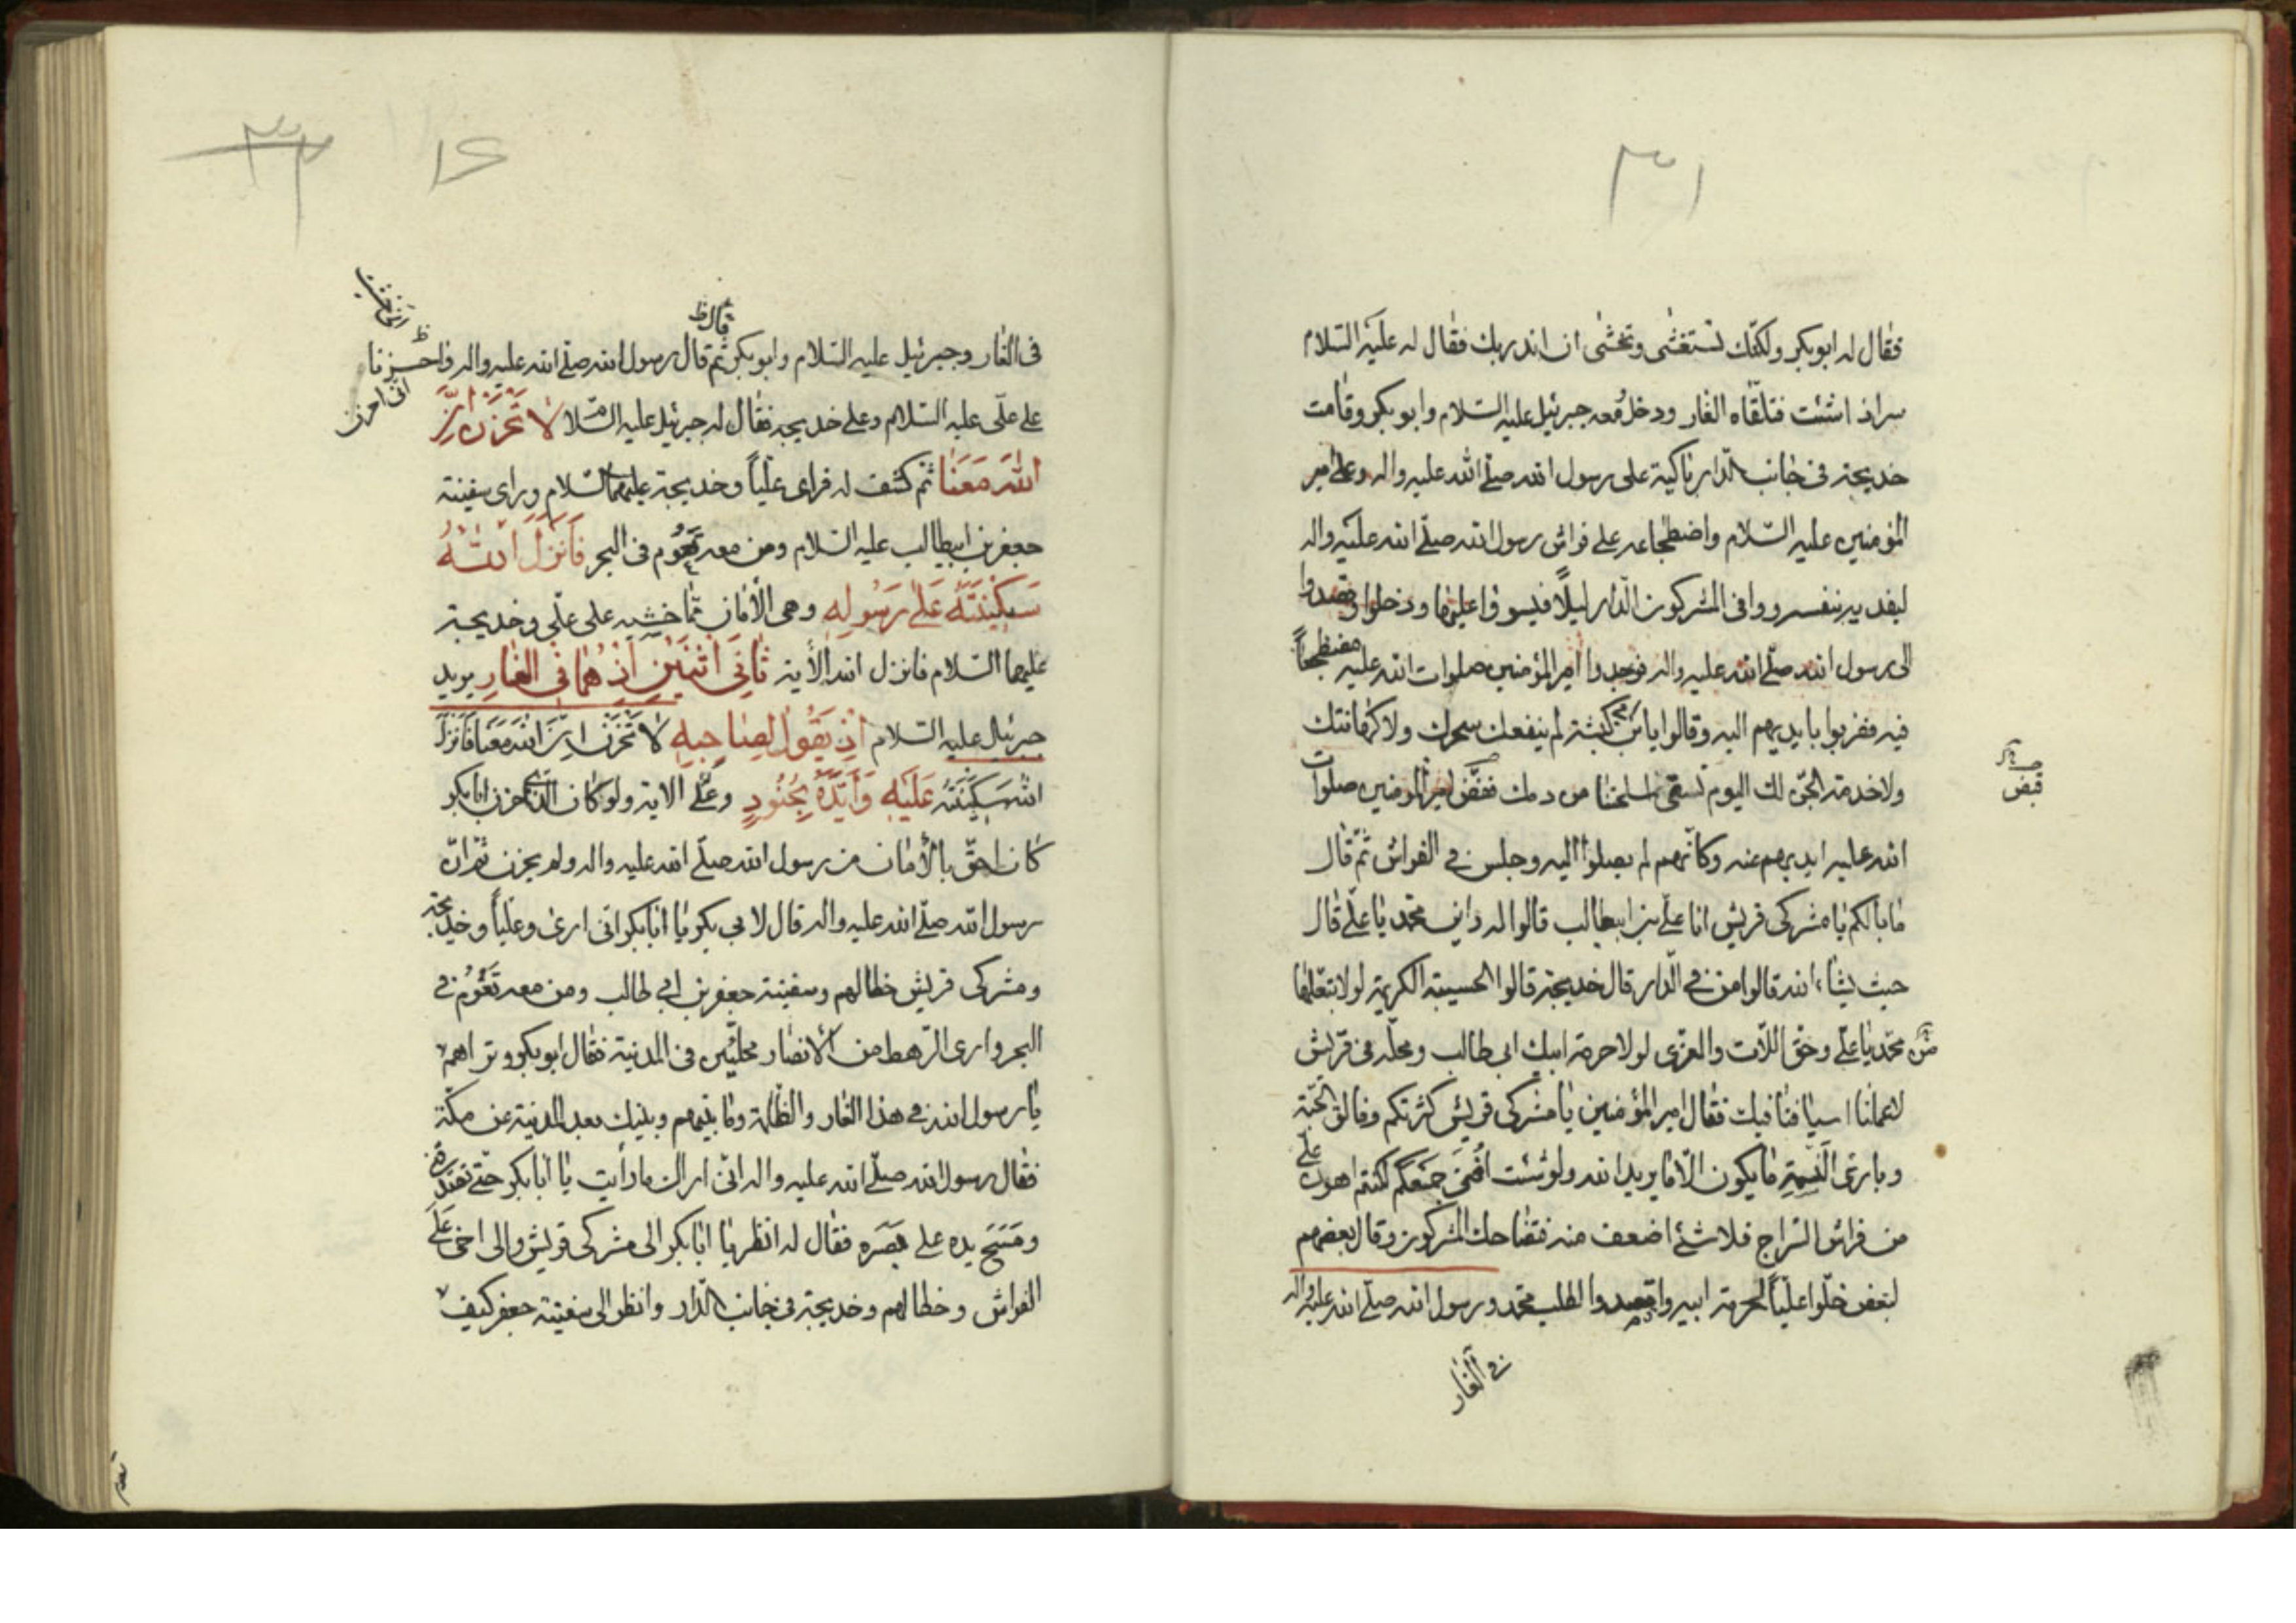 ٣١
فقال له ابوبكر ولكنّك تستغشى وتخشى ان انذر بك فقال له عليه السّلام
سر اذا شئت فتلقّاه الغار ودخل معه جبرئيل عليه السّلام وابوبكر وقامت
خديجة فى جانب الدّار باكية على رسول الله صلّى الله عليه واله وعلى امير
المؤمنين عليه السّلام واضطجاعه على فراش رسول الله صلّى الله عليه واله
ليفديه بنفسه ووافى المشركون الدّار ليلاً فيسوقوا عليها ودخلوا وقصدوا
الى رسول الله صلّى الله عليه واله فوجدوا امير المؤمنين صلوات الله عليه مضطجعاً
فيه فضربوا بايديهم اليه وقالوا يابن ابى كبشة لم ينفعك سحرك ولا كهانتك
ولا خدمة الجنّ لك اليوم نسقى اسلحتنا من دمك فنفض امير المؤمنين صلوات
قبض
الله عليه ايديهم عنه وكانّهم لم يصلوا اليه وجلس فى الفراش ثمّ قال
ما بالكم يا مشركى قريش انا علىّ بن ابيطالب قالوا له واين محمّد يا علىّ قال
حيث يشاء الله قالوا من فى الدّار قال خديجة قالوا الحسيبة الكريمة لولا تبعّلها
من محمّد يا علىّ وحقّ اللّات والعزّى لولا حرمة ابيك ابى طالب ومحلّه فى قريش
لاعملنا اسيافنا فيك فقال امير المؤمنين يا مشركى قريش كثرتكم وفالق الحبّة
وبارئ النّسمة ما يكون الّا ما يريد الله ولو شئت افنى جمعكم لكنتم اهون علىّ
من فراش السّراج فلا شئ اضعف منه فتضاحك المشركون وقال بعضهم
لبعض خلّوا عليّاً لحرمة ابيه واقصدوا الطلب محمّد ورسول الله صلّى الله عليه واله
فى الغار
١٦
٣٢
قال ظ
فى الغار وجبرئيل عليه السّلام وابوبكر ثم قال رسول الله صلّى الله عليه واله واحسزنا
انّى احزن
على علىّ عليه السّلام وعلى خديجة فقال له جبرئيل عليه السّلام لا تَحْزَنْ اِنَّ
اللهَ مَعَنا ثم كشف له فراى عليّاً وخديجة عليهما السّلام وراى سفينة
جعفر بن ابيطالب عليه السّلام ومن معه تعوم فى البحر فَاَنْزَلَ اللهُ
سَكِينَتَهُ عَلى رَسُولِهِ وهى الأمان ممّا خشيه على علىّ وخديجة
عليهما السّلام فانزل الله الأية ثانِىَ اثْنَيْنِ اِذْ هُما فِى الغارِ يريد
جبرئيل عليه السّلام اِذْ يَقُولُ لِصاحِبِهِ لا تَحْزَنْ اِنَّ اللهَ مَعَنا فَاَنْزَلَ
اللهُ سَكِينَتَهُ عَلَيْهِ وَاَيَّدَهُ بِجُنُودٍ الاية ولو كان الّذى حزن ابابكر
كان احقّ بالأمان من رسول الله صلّى الله عليه واله ولم يحزن ثم انّ
رسول الله صلّى الله عليه واله قال لابى بكر يا ابابكر انّى ارى وعليّاً وخديجة
ومشركى قريش وخطابهم وسفينة جعفر بن ابى طالب ومن معه تعوم فى
البحر وارى الرّهط من الأنصار مجلبين فى المدينة فقال ابوبكر وتراهم
يا رسول الله فى هذا الغار والظّلمة وما بينهم وبينك بعد المدينة عن مكّة
فقال رسول الله صلّى الله عليه واله انّى اراك ما رأيت يا ابابكر حتّى تصدّقنى
ومَسَحَ يده على بصره فقال له انظر يا ابابكر الى مشركى قريش والى اخى على
الفراش وخطابهم وخديجة فى جانب الدّار وانظر الى سفينة جعفر كيف